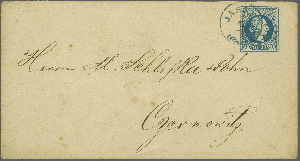 JASS
Herrn M. Schlifka Sohn
Czernowitz